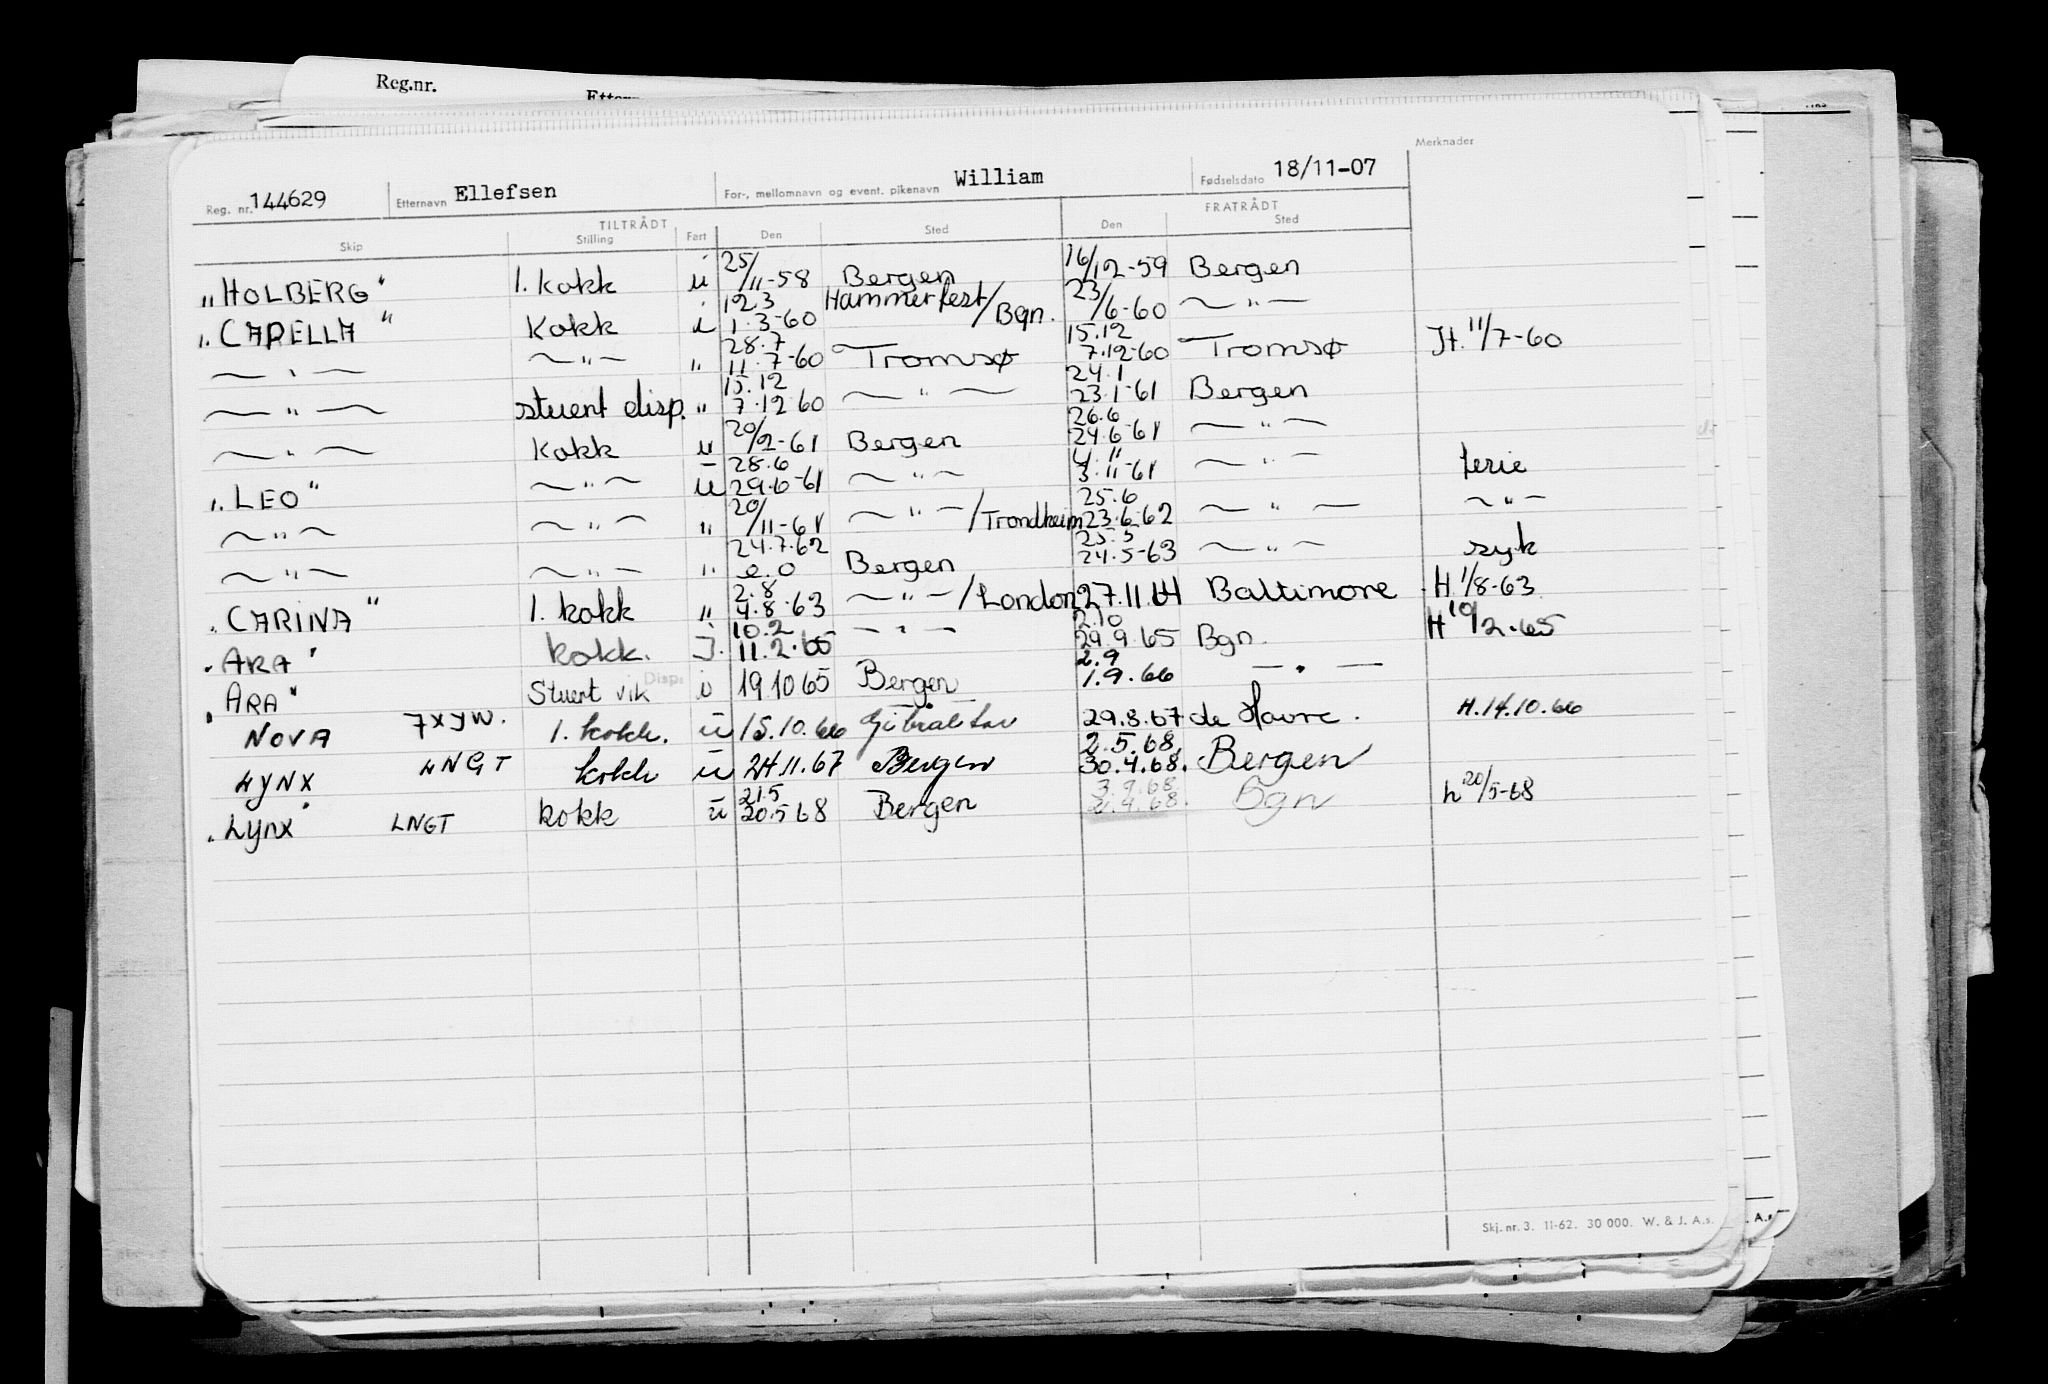 Reg.nr.
Merknader
Reg. nr. 144629 Etternavn Ellefsen For-, mellomnavn og event. pikenavn William Fødselsdato 18/11-07
TILTRÅDT FRATRÅDT
Skip Stilling Fart Den Sted Den Sted
"HOLBERG" 1. kokk u 25/11-58 Bergen 16/12-59 Bergen
"CAPELLA" Kokk i 12.3 1.3-60 Hammerfest/Bgn. 23/6-60 〃
〃 〃 〃 28.7 11.7-60 Tromsø 15.12 7.12-60 Tromsø Jt. 11/7-60
〃 stuert disp. 〃 15.12 7.12 60 〃 24.1 23.1-61 Bergen
〃 Kokk u 20/2-61 Bergen 26.6 24.6-61 〃
"LEO" 〃 u 28.6 29.6-61 〃 4.11 3.11-61 〃 ferie
〃 〃 〃 20/11-61 〃/Trondheim 25.6 23.6.62 〃 〃
〃 〃 〃 24.7.62 e.o Bergen 25.5 24.5-63 〃 syk
"CARINA" 1. kokk 〃 2.8 4.8-63 〃/London 27.11.64 Baltimore H 1/8-63
"ARA" kokk. J. 10.2 11.2.65 〃 2.10 29.9.65 Bgn. H 10/2-65
"ARA" Stuert vik Disp. i 19.10 65 Bergen 2.9 1.9.66 〃
NOVA 7XYW. 1. kokk. u 15.10.66 Gibraltar 29.8.67 de Havre. H.14.10.66
LYNX LNGT kokk u 24.11.67 Bergen 2.5.68. 30.4.68. Bergen
"Lynx" LNGT kokk u 21.5 20.5 68 Bergen 3.9.68 2.9.68. Bgn h 20/5-68
Skj. nr. 3. 11-62. 30 000. W. & J. A.s.